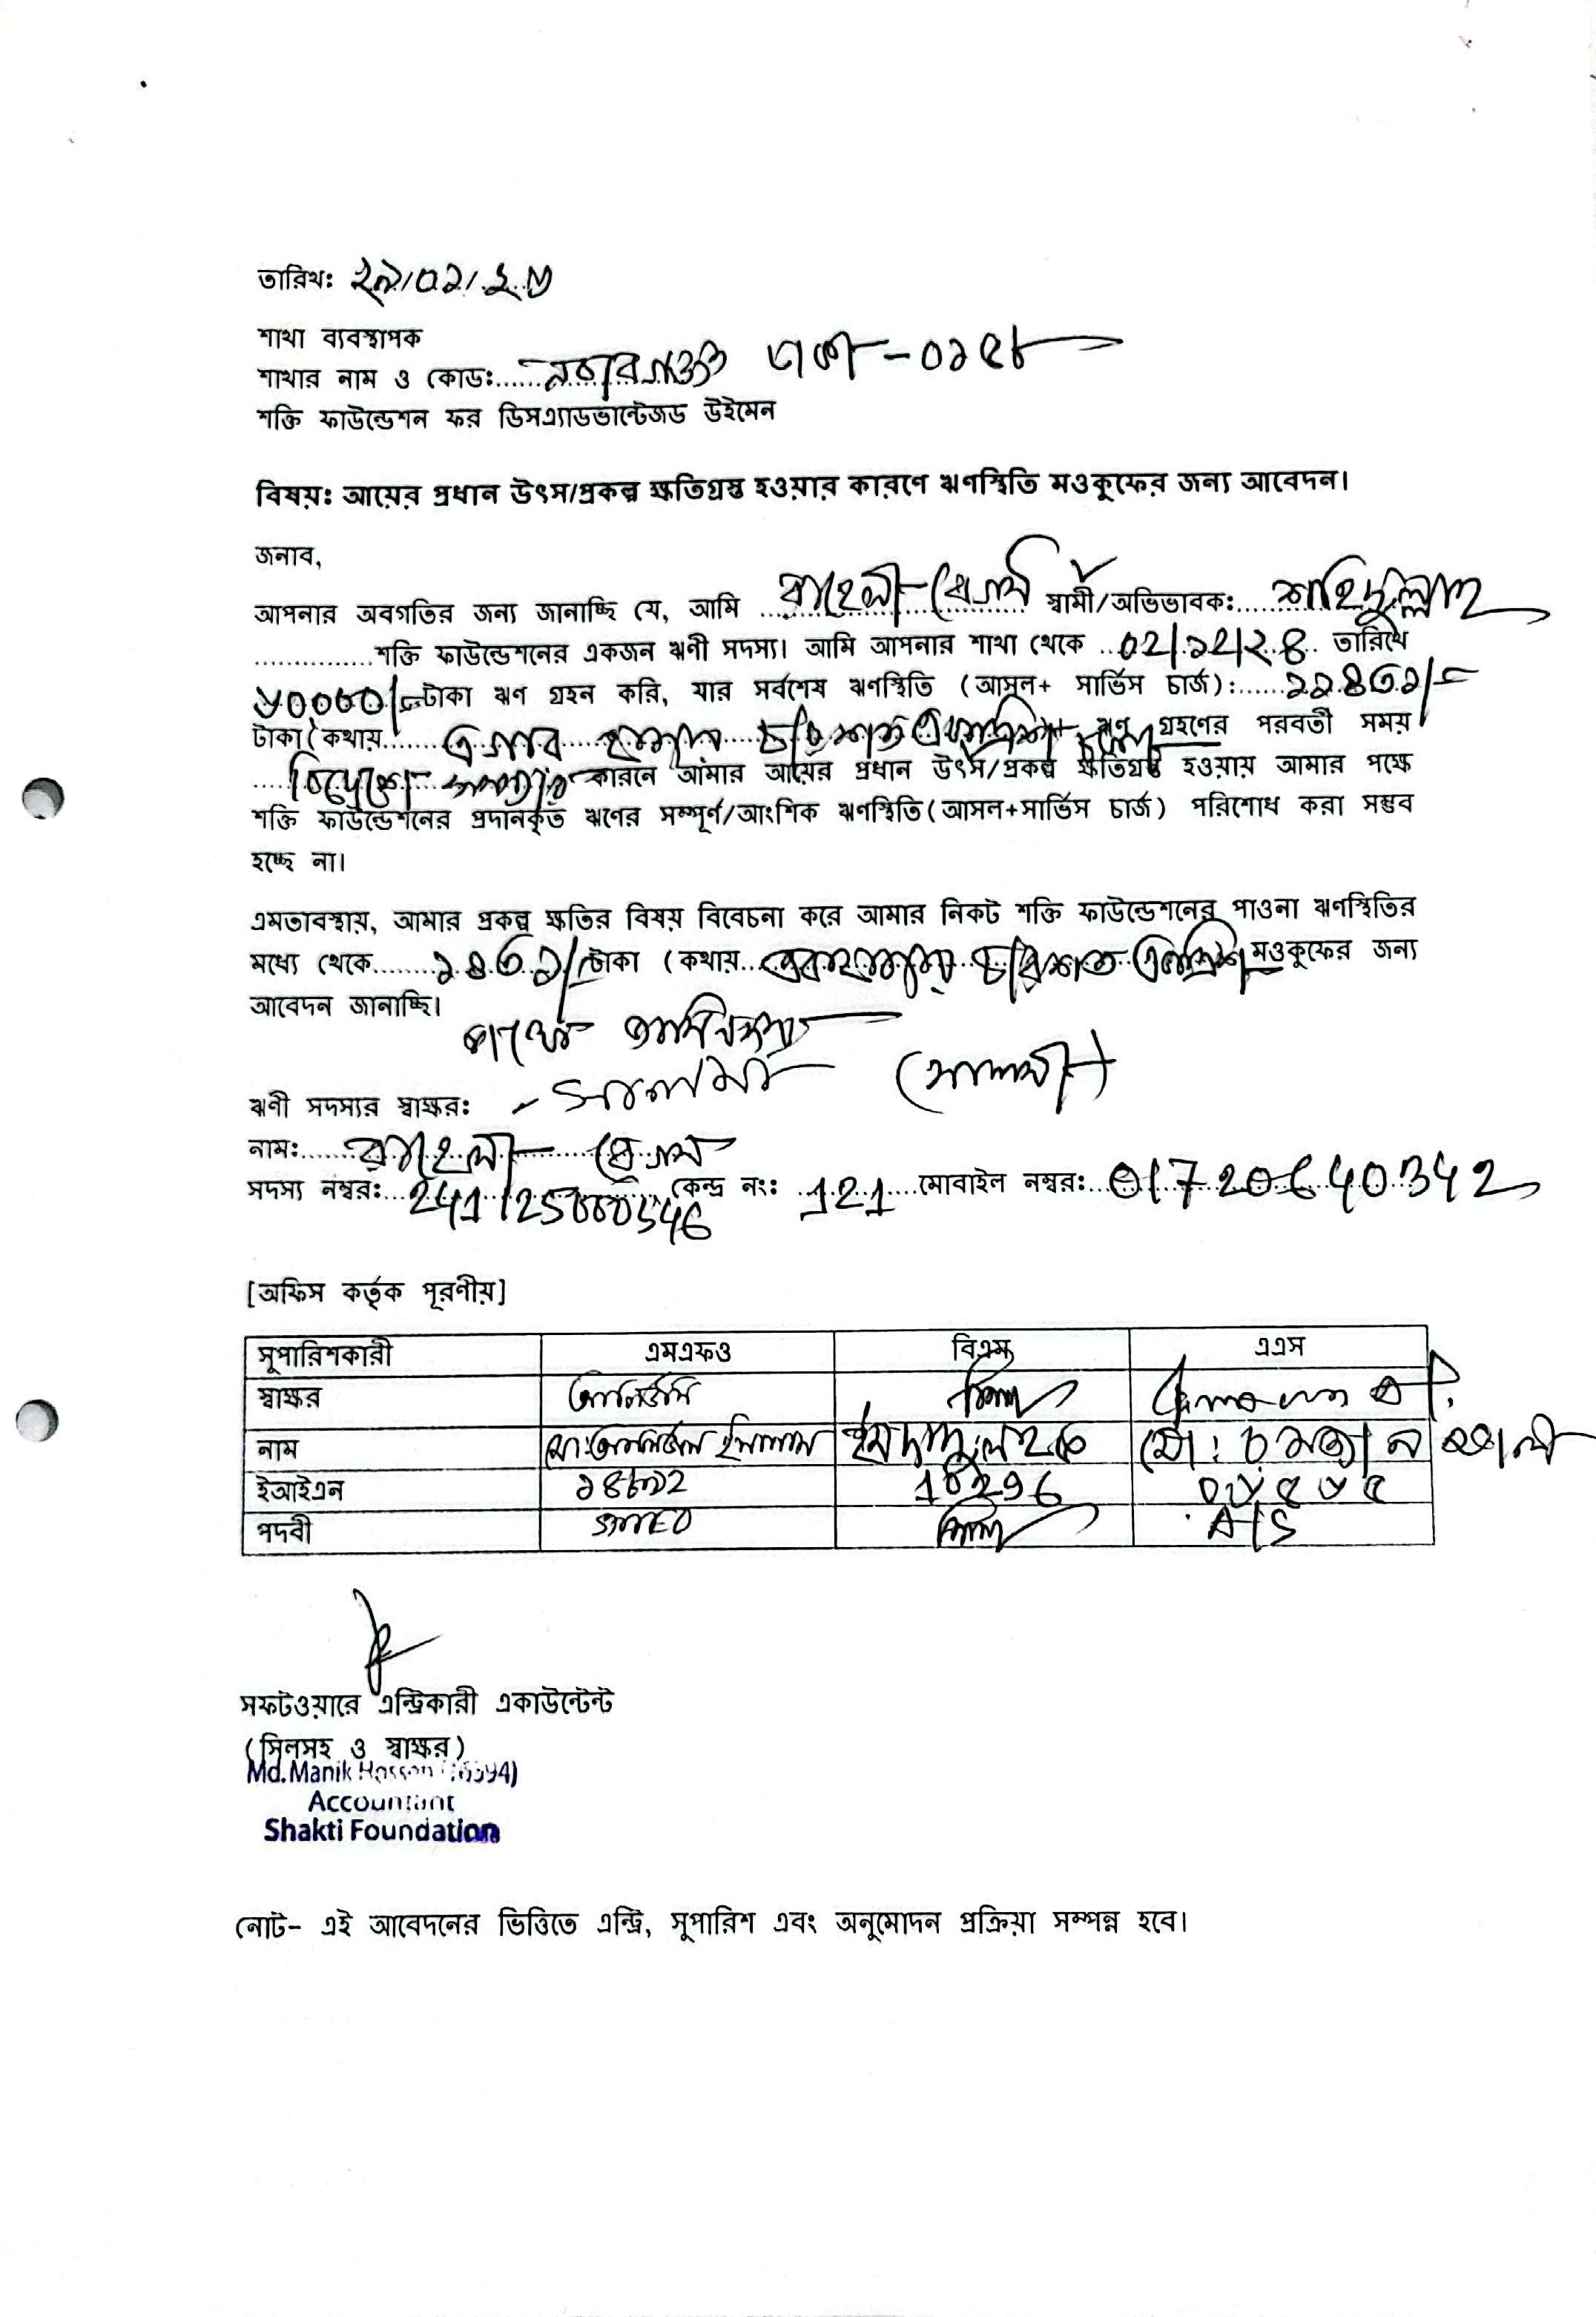 তারিখ: ২৯/০১/২৬
শাখা ব্যবস্থাপক
শাখার নাম ও কোড: নবাবগঞ্জ ঢাকা-০১৫৮
শক্তি ফাউন্ডেশন ফর ডিসএ্যাডভান্টেজড উইমেন
বিষয়: আয়ের প্রধান উৎস/প্রকল্প ক্ষতিগ্রস্ত হওয়ার কারণে ঋণস্থিতি মওকুফের জন্য আবেদন।
জনাব,
আপনার অবগতির জন্য জানাচ্ছি যে, আমি রাহেলা বেগম স্বামী/অভিভাবক: শাহিদুল্লাহ
শক্তি ফাউন্ডেশনের একজন ঋণী সদস্য। আমি আপনার শাখা থেকে ০২/১২/২৪ তারিখে
৬০,০০০/= টাকা ঋণ গ্রহন করি, যার সর্বশেষ ঋণস্থিতি (আসল+ সার্ভিস চার্জ): ১১৪৩১/=
টাকা (কথায় এগার হাজার চারশত একত্রিশ ঋণ গ্রহণের পরবর্তী সময়
কারনে আমার আয়ের প্রধান উৎস/প্রকল্প ক্ষতিগ্রস্ত হওয়ায় আমার পক্ষে
শক্তি ফাউন্ডেশনের প্রদানকৃত ঋণের সম্পূর্ণ/আংশিক ঋণস্থিতি(আসল+সার্ভিস চার্জ) পরিশোধ করা সম্ভব
হচ্ছে না।
এমতাবস্থায়, আমার প্রকল্প ক্ষতির বিষয় বিবেচনা করে আমার নিকট শক্তি ফাউন্ডেশনের পাওনা ঋণস্থিতির
মধ্যে থেকে ১৪৩১/= টাকা (কথায় একহাজার চারশত একত্রিশ মওকুফের জন্য
আবেদন জানাচ্ছি।
ঋণী সদস্যর স্বাক্ষর:
নাম: রাহেলা বেগম
সদস্য নম্বর: কেন্দ্র নং: 121 মোবাইল নম্বর: 01720640342
[অফিস কর্তৃক পূরণীয়]
সুপারিশকারী এমএফও বিএম এএস
স্বাক্ষর
নাম মো: ইসলাম ইমদাদুল হক মো:
ইআইএন 18296 ০৬৫৬৫
পদবী SMFO A/S
সফটওয়ারে এন্ট্রিকারী একাউন্টেন্ট
(সিলসহ ও স্বাক্ষর)
Md. Manik Hossan
Accountant
Shakti Foundation
নোট- এই আবেদনের ভিত্তিতে এন্ট্রি, সুপারিশ এবং অনুমোদন প্রক্রিয়া সম্পন্ন হবে।